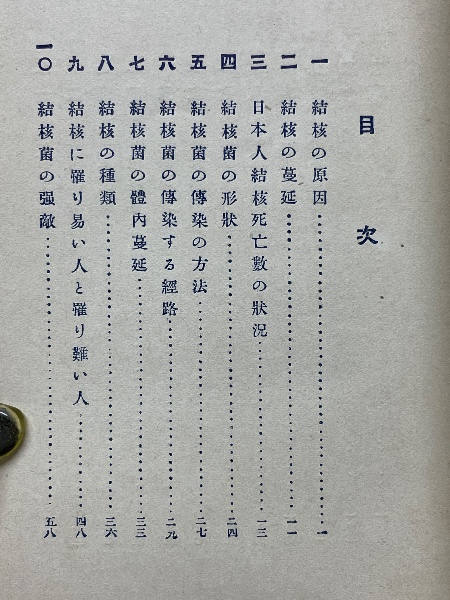 目次
一 結核の原因……一
二 結核の蔓延……一一
三 日本人結核死亡數の狀況……一三
四 結核菌の形狀……二四
五 結核菌の傳染の方法……二七
六 結核菌の傳染する經路……二九
七 結核菌の體內蔓延……三三
八 結核の種類……三六
九 結核に罹り易い人と罹り難い人……四八
一〇 結核菌の强敵……五八